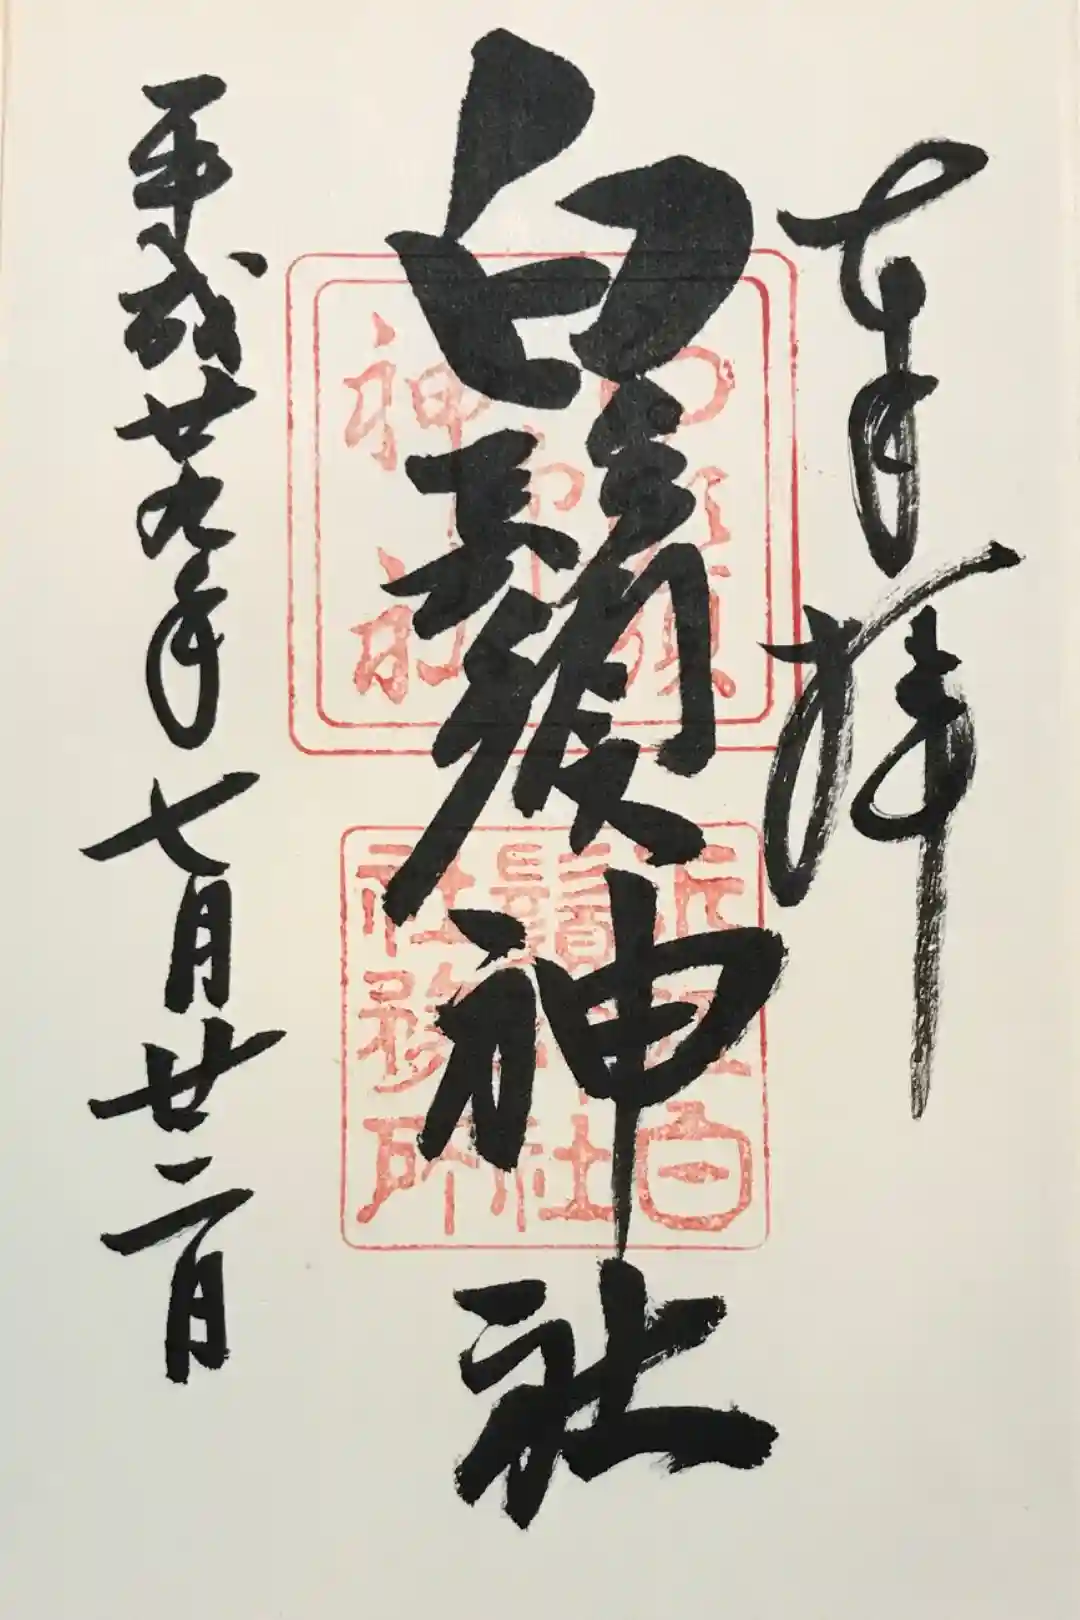 奉拝
白鬚神社
近江白
鬚神社
社務所
平成廿九年七月廿二日